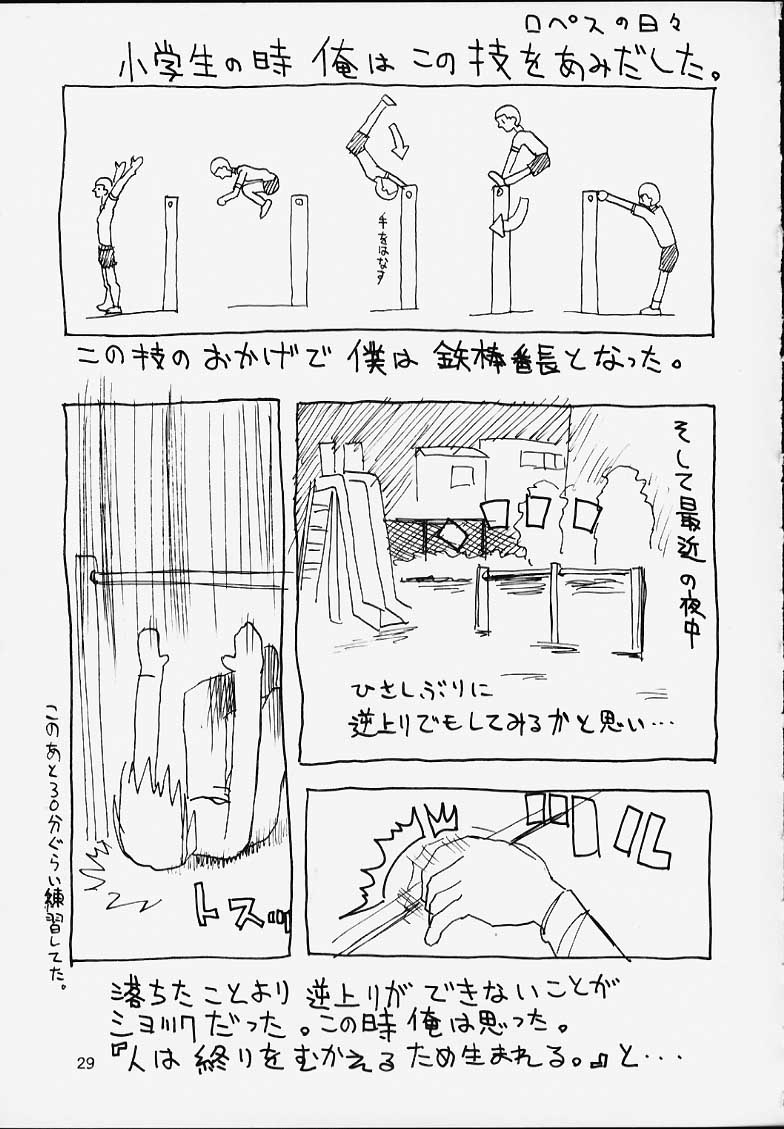 ロペスの日々
小学生の時 俺は この技を あみだした。
手をはなす
この技の おかげで 僕は 鉄棒番長となった。
そして最近の夜中
ひさしぶりに
逆上りでもしてみるかと思い・・・
トスッ
このあと30分ぐらい練習してた。
落ちたことより 逆上りができないことが
ショックだった。この時 俺は思った。
『人は 終りを むかえる ため生まれる。』と・・・
29